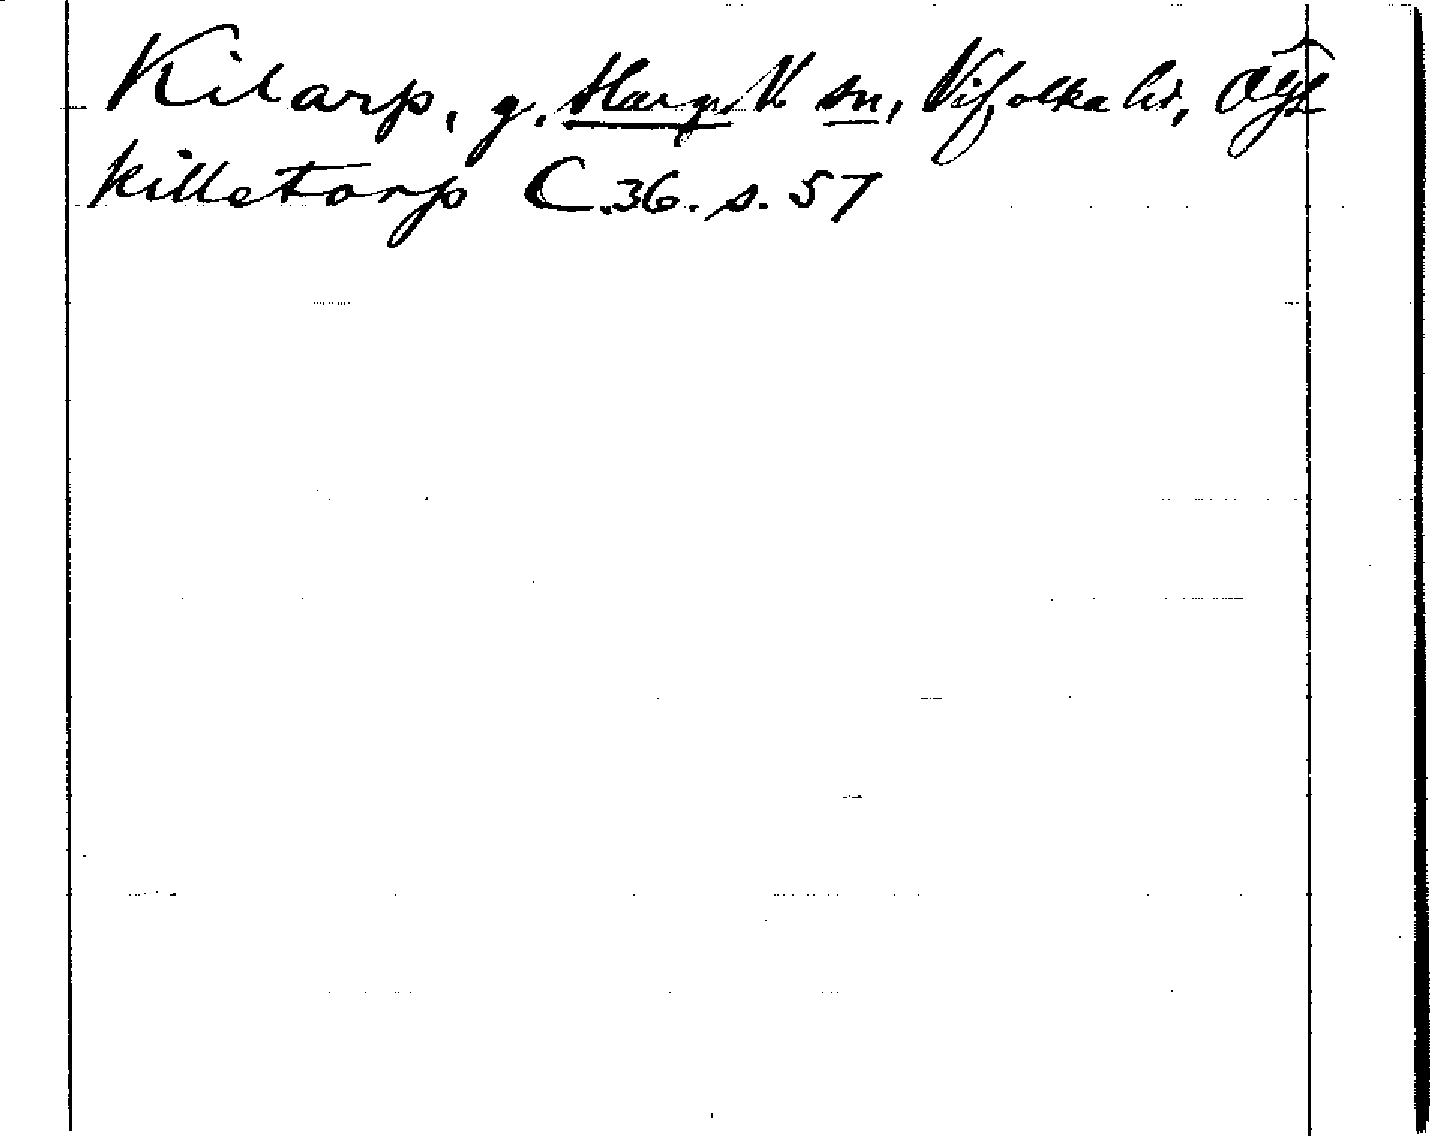 Kilarp, g. Harg. V. sn, Vifolka hd, Ögl
killetorp C.36. s. 57